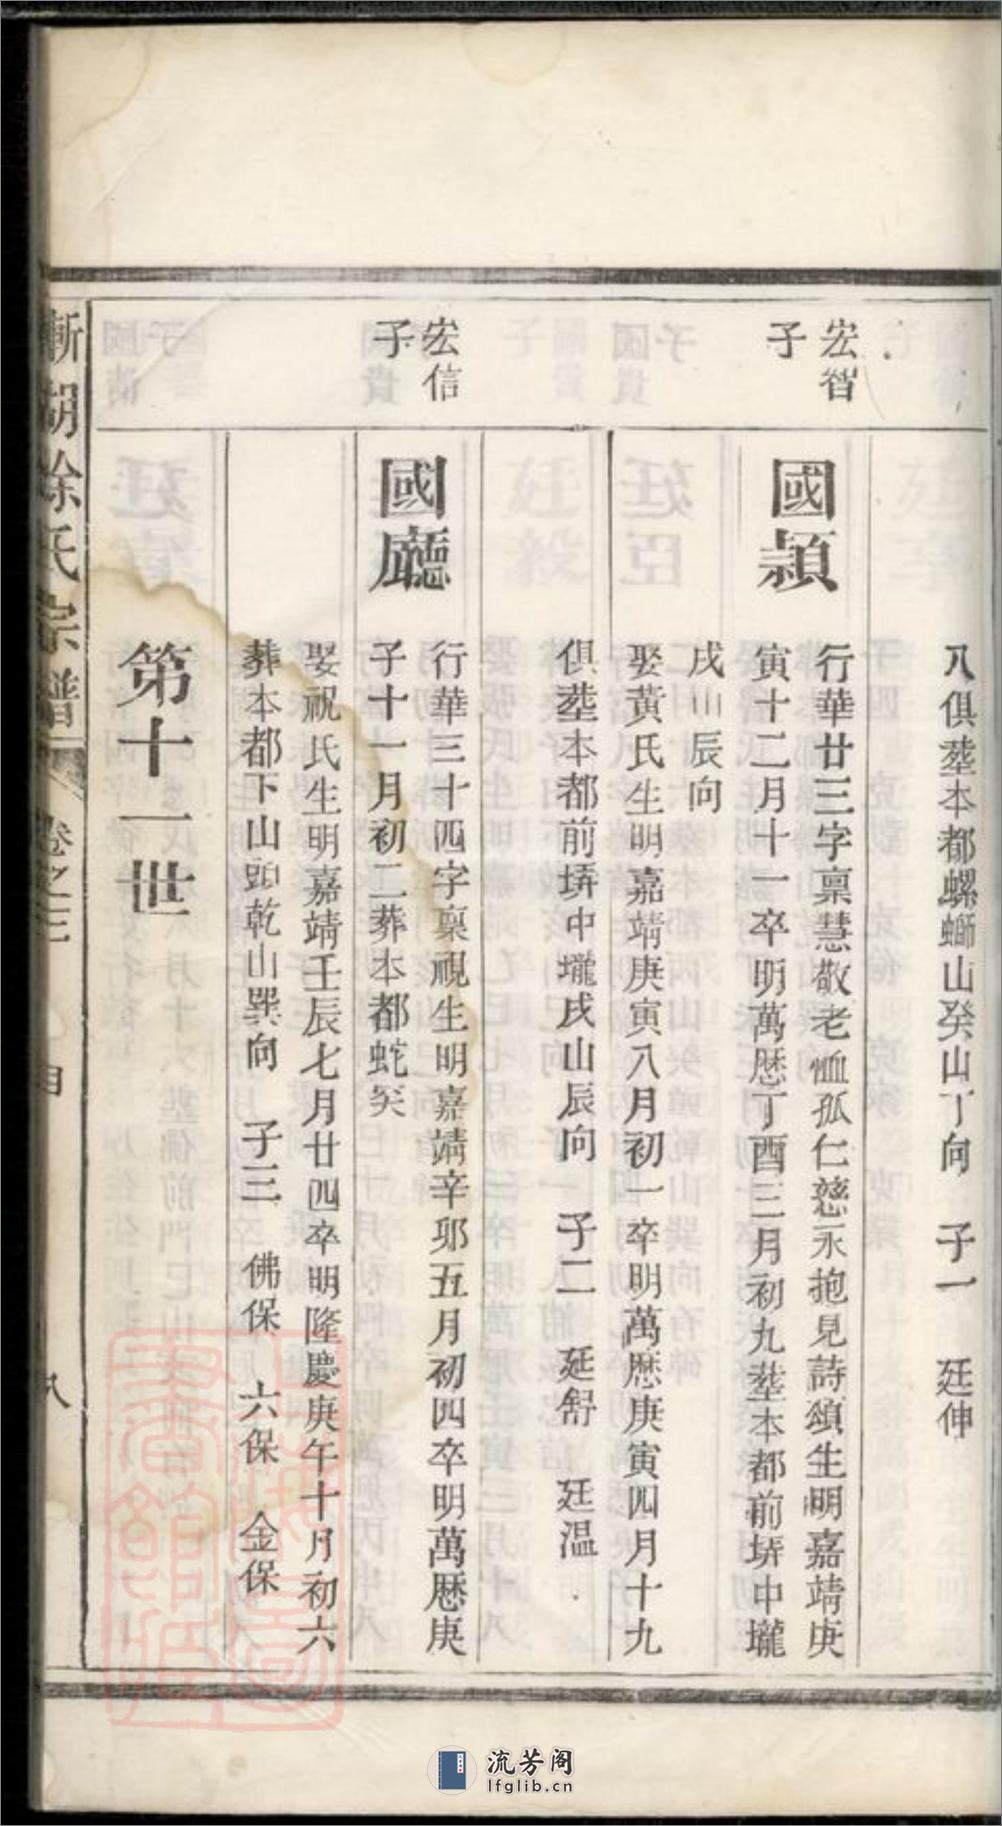 八俱塟本都螺螄山癸山丁向　子一　廷伸
宏智子
國頴
行華廿三字禀慧敬老恤孤仁慈永抱見詩頌生明嘉靖庚
寅十二月十一卒明萬厯丁酉三月初九塟本都前塝中壠
戌山辰向
娶黃氏生明嘉靖庚寅八月初一卒明萬厯庚寅四月十九
俱塟本都前塝中壠戌山辰向　子二　廷舒　廷温
宏信子
國廳
行華三十四字禀視生明嘉靖辛邜五月初四卒明萬厯庚
子十一月初二葬本都蛇
娶祝氏生明嘉靖壬辰七月廿四卒明隆慶庚午十月初六
葬本都下山頭乾山巽向　子三　佛保　六保　金保
第十一世
漸湖徐氏宗譜　卷之三　八
流芳阁
lfglib.cn